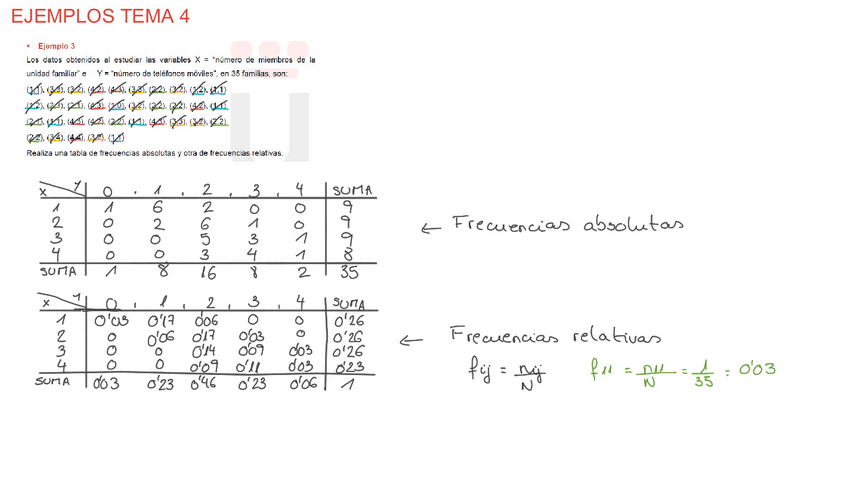 EJEMPLOS TEMA 4
• Ejemplo 3
Los datos obtenidos al estudiar las variables X = "número de miembros de la
unidad familiar" e Y = "número de teléfonos móviles", en 35 familias, son:
Realiza una tabla de frecuencias absolutas y otra de frecuencias relativas.
X Y 0 1 2 3 4 SUMA
1 1 6 2 0 0 9
2 0 2 6 1 0 9
3 0 0 5 3 1 9
4 0 0 3 4 1 8
SUMA 1 8 16 8 2 35
← Frecuencias absolutas
X Y 0 1 2 3 4 SUMA
1 0'03 0'17 0'06 0 0 0'26
2 0 0'06 0'17 0'03 0 0'26
3 0 0 0'14 0'09 0'03 0'26
4 0 0 0'09 0'11 0'03 0'23
SUMA 0'03 0'23 0'46 0'23 0'06 1
← Frecuencias relativas
fij = nij/N f11 = n11/N = 1/35 = 0'03